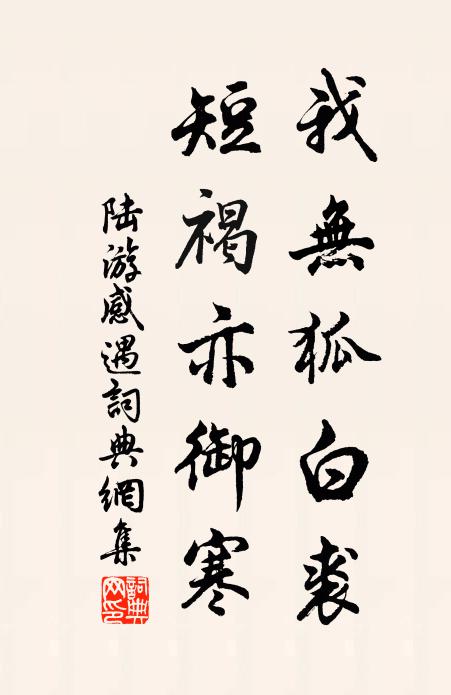 我無狐白裘
短褐亦御寒
陆游感遇詞典網集
詞典網印